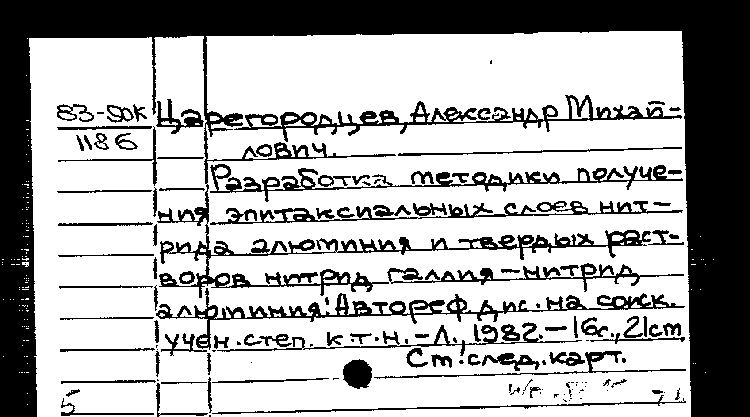 83-5ок Царегородцев, Александр Михай-
1186 лович.
Разработка методики получе-
ния эпитаксиальных слоев нит-
рида алюминия и твердых раст-
воров нитрид галлия-нитрид
алюминия: Автореф. дис. на соиск.
учен. степ. к.т.н. -Л., 1982.-16с., 21cm.
Ст. след. карт.
5